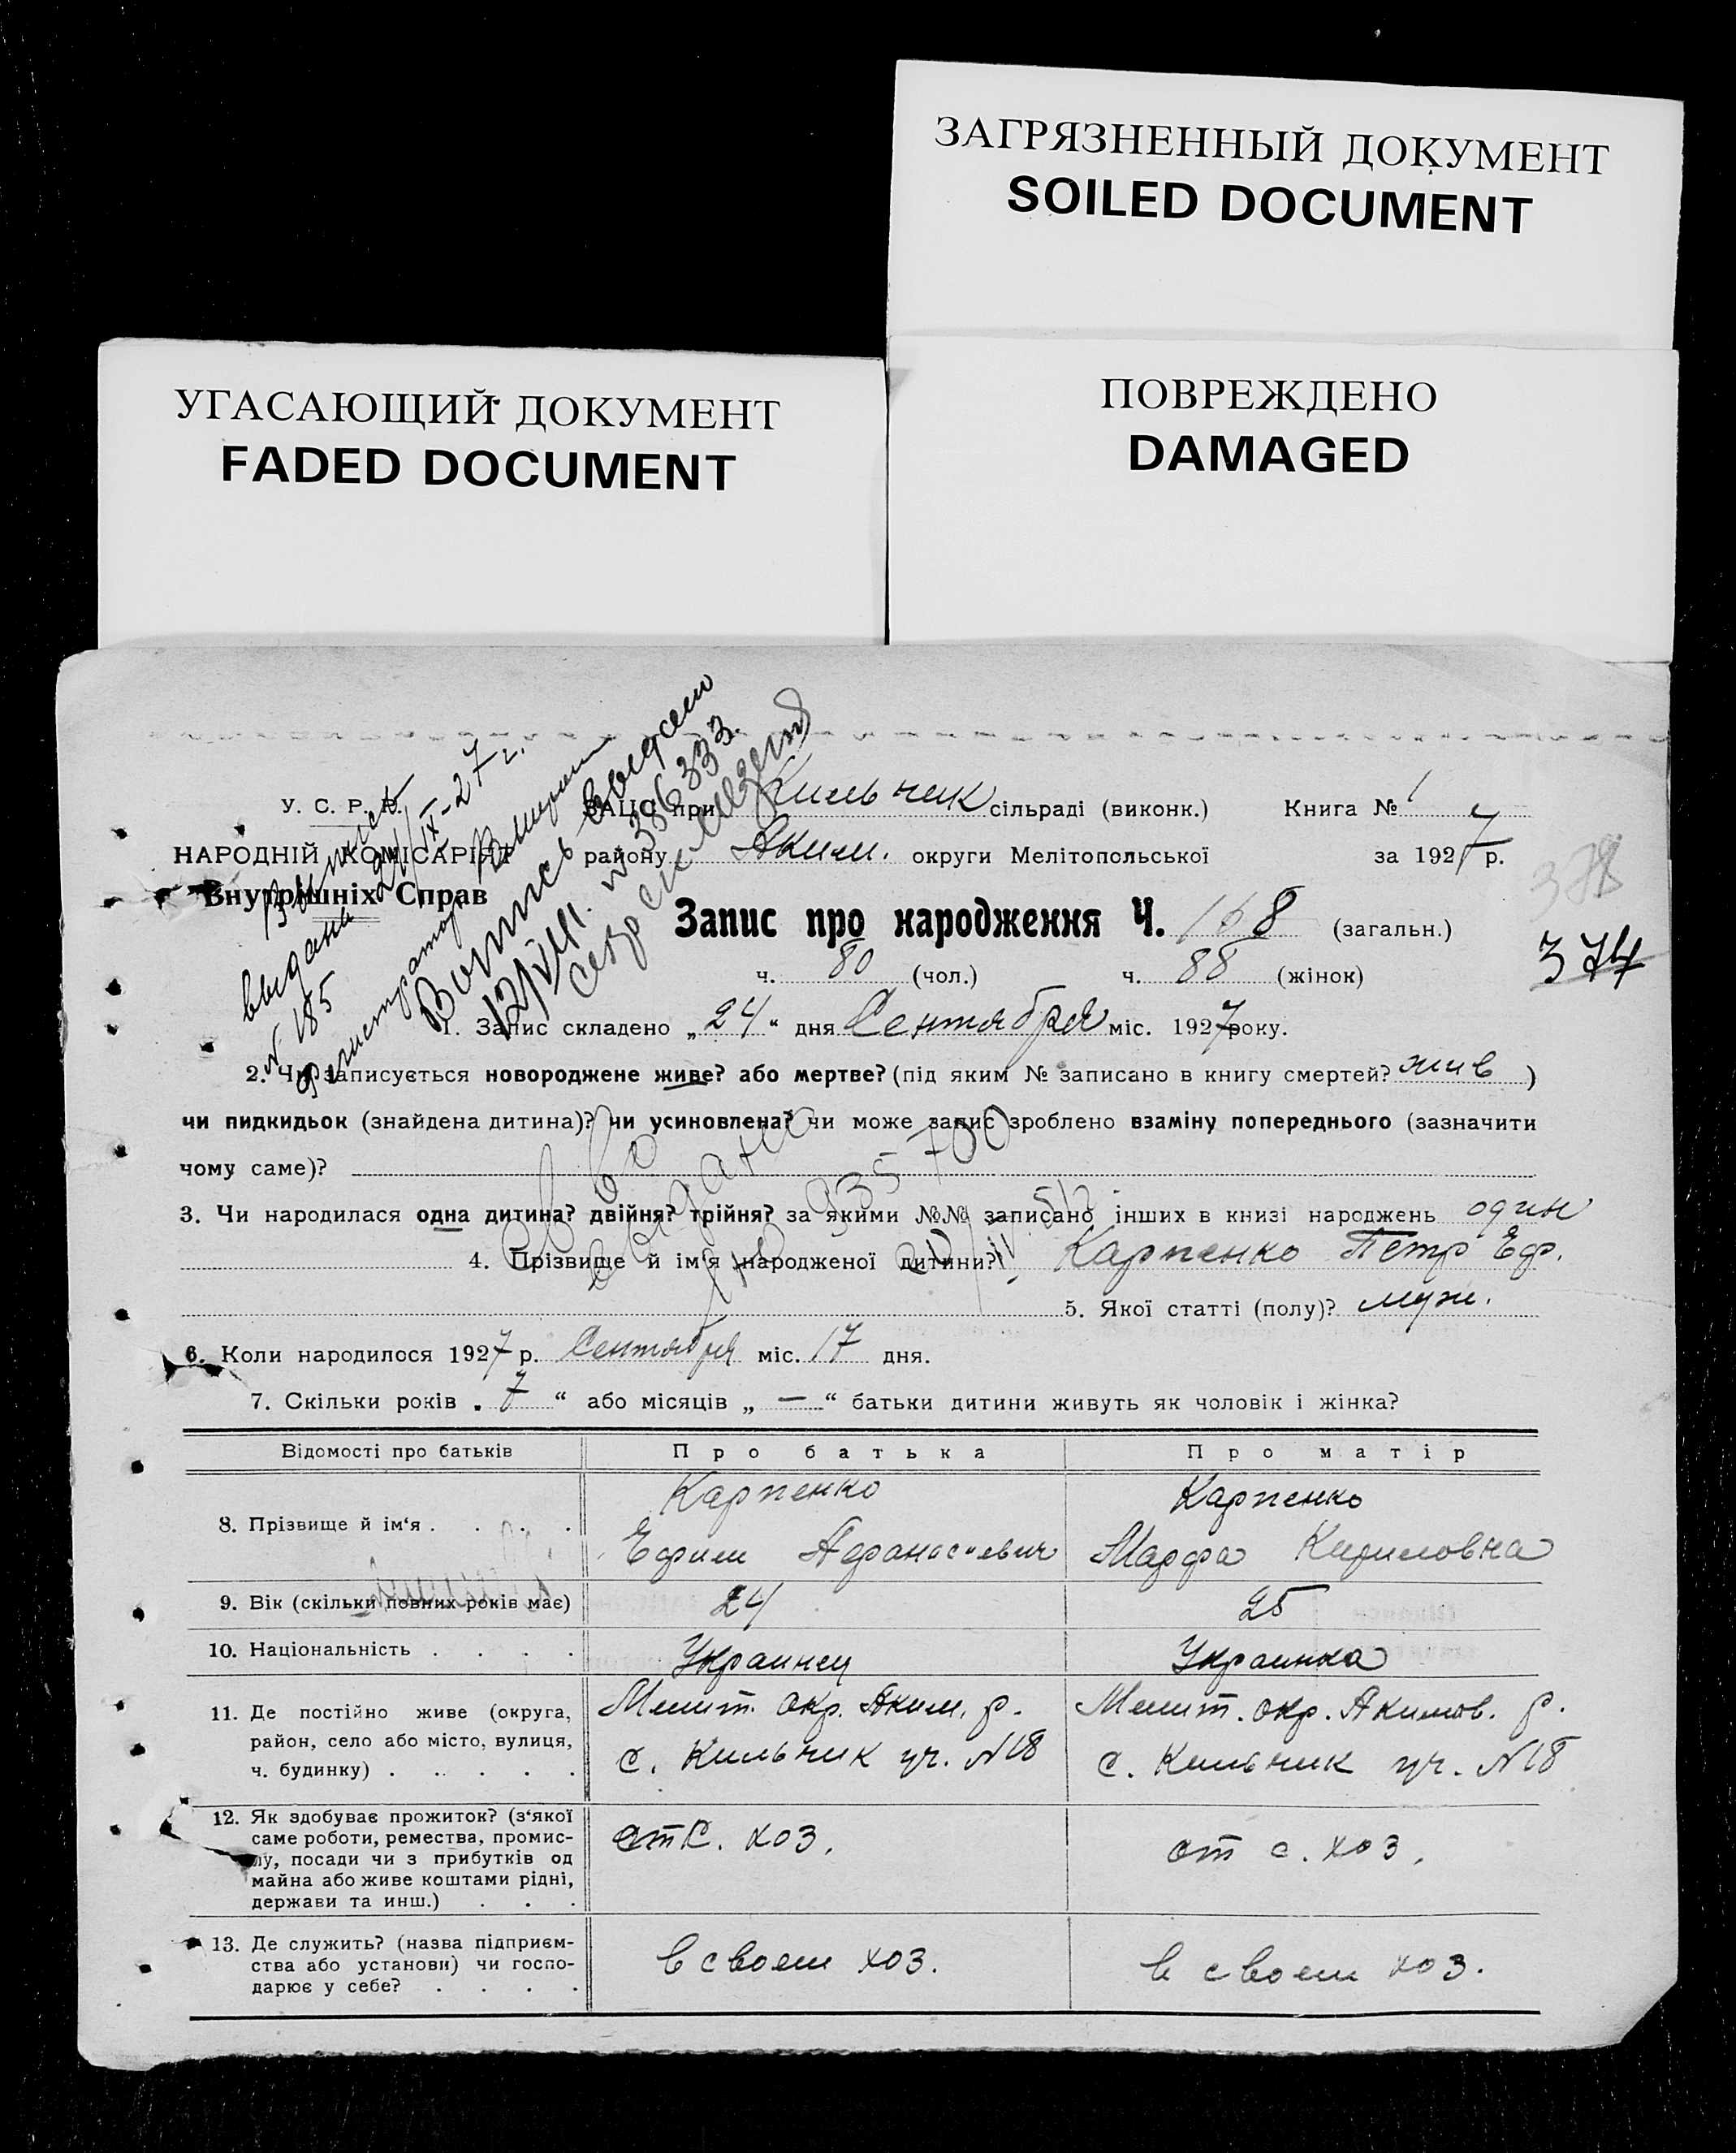 ЗАГРЯЗНЕННЫЙ ДОКУМЕНТ
SOILED DOCUMENT
УГАСАЮЩИЙ ДОКУМЕНТ
FADED DOCUMENT
ПОВРЕЖДЕНО
DAMAGED
У. С. Р. Р.
НАРОДНІЙ КОМІСАРІЯТ
Внутрішніх Справ
выдана 24/IX-27 г.
N. 185
ЗАЦС при Кильчик сільраді (виконк.) Книга № 1
району Аким. округи Мелітопольської за 1927 р.
378
Запис про народження Ч. 168 (загальн.)
374
ч. 80 (чол.) ч. 88 (жінок)
1. Запис складено „24“ дня Сентября міс. 1927 року.
2. Чи записується новороджене живе? або мертве? (під яким № записано в книгу смертей? жив )
чи пидкидьок (знайдена дитина)? чи усиновлена? чи може запис зроблено взаміну попереднього (зазначити
чому саме)?
3. Чи народилася одна дитина? двійня? трійня? за якими №№ записано інших в книзі народжень один
4. Прізвище й ім'я народженої дитини? Карпенко Петр Еф.
5. Якої статті (полу)? муж.
6. Коли народилося 1927 р. Сентября міс. 17 дня.
7. Скільки років „ 7 “ або місяців „ — “ батьки дитини живуть як чоловік і жінка?
Відомості про батьків Про батька Про матір
8. Прізвище й ім'я . . . . Карпенко Карпенко
Ефим Афанасиевич Марфа Кириловна
9. Вік (скільки повних років має) 24 25
10. Національність . . . . Украинец Украинка
11. Де постійно живе (округа, район, село або місто, вулиця, ч. будинку) . . . . .
Мелит. окр. Аким. р. Мелит. окр. Акимов. р.
с. Кильчик уч. N18 с. Кильчик уч. N18
12. Як здобуває прожиток? (з'якої
саме роботи, ремества, промис-
лу, посади чи з прибутків од
майна або живе коштами рідні,
держави та инш.) . . .
от с. хоз. от с. хоз.
13. Де служить? (назва підприєм-
ства або установи) чи госпо-
дарює у себе? . . . .
в своем хоз. в своем хоз.